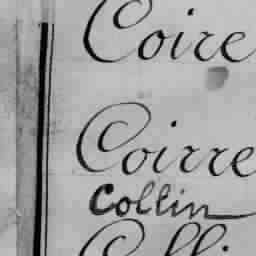 Coire
Coirre
Collin